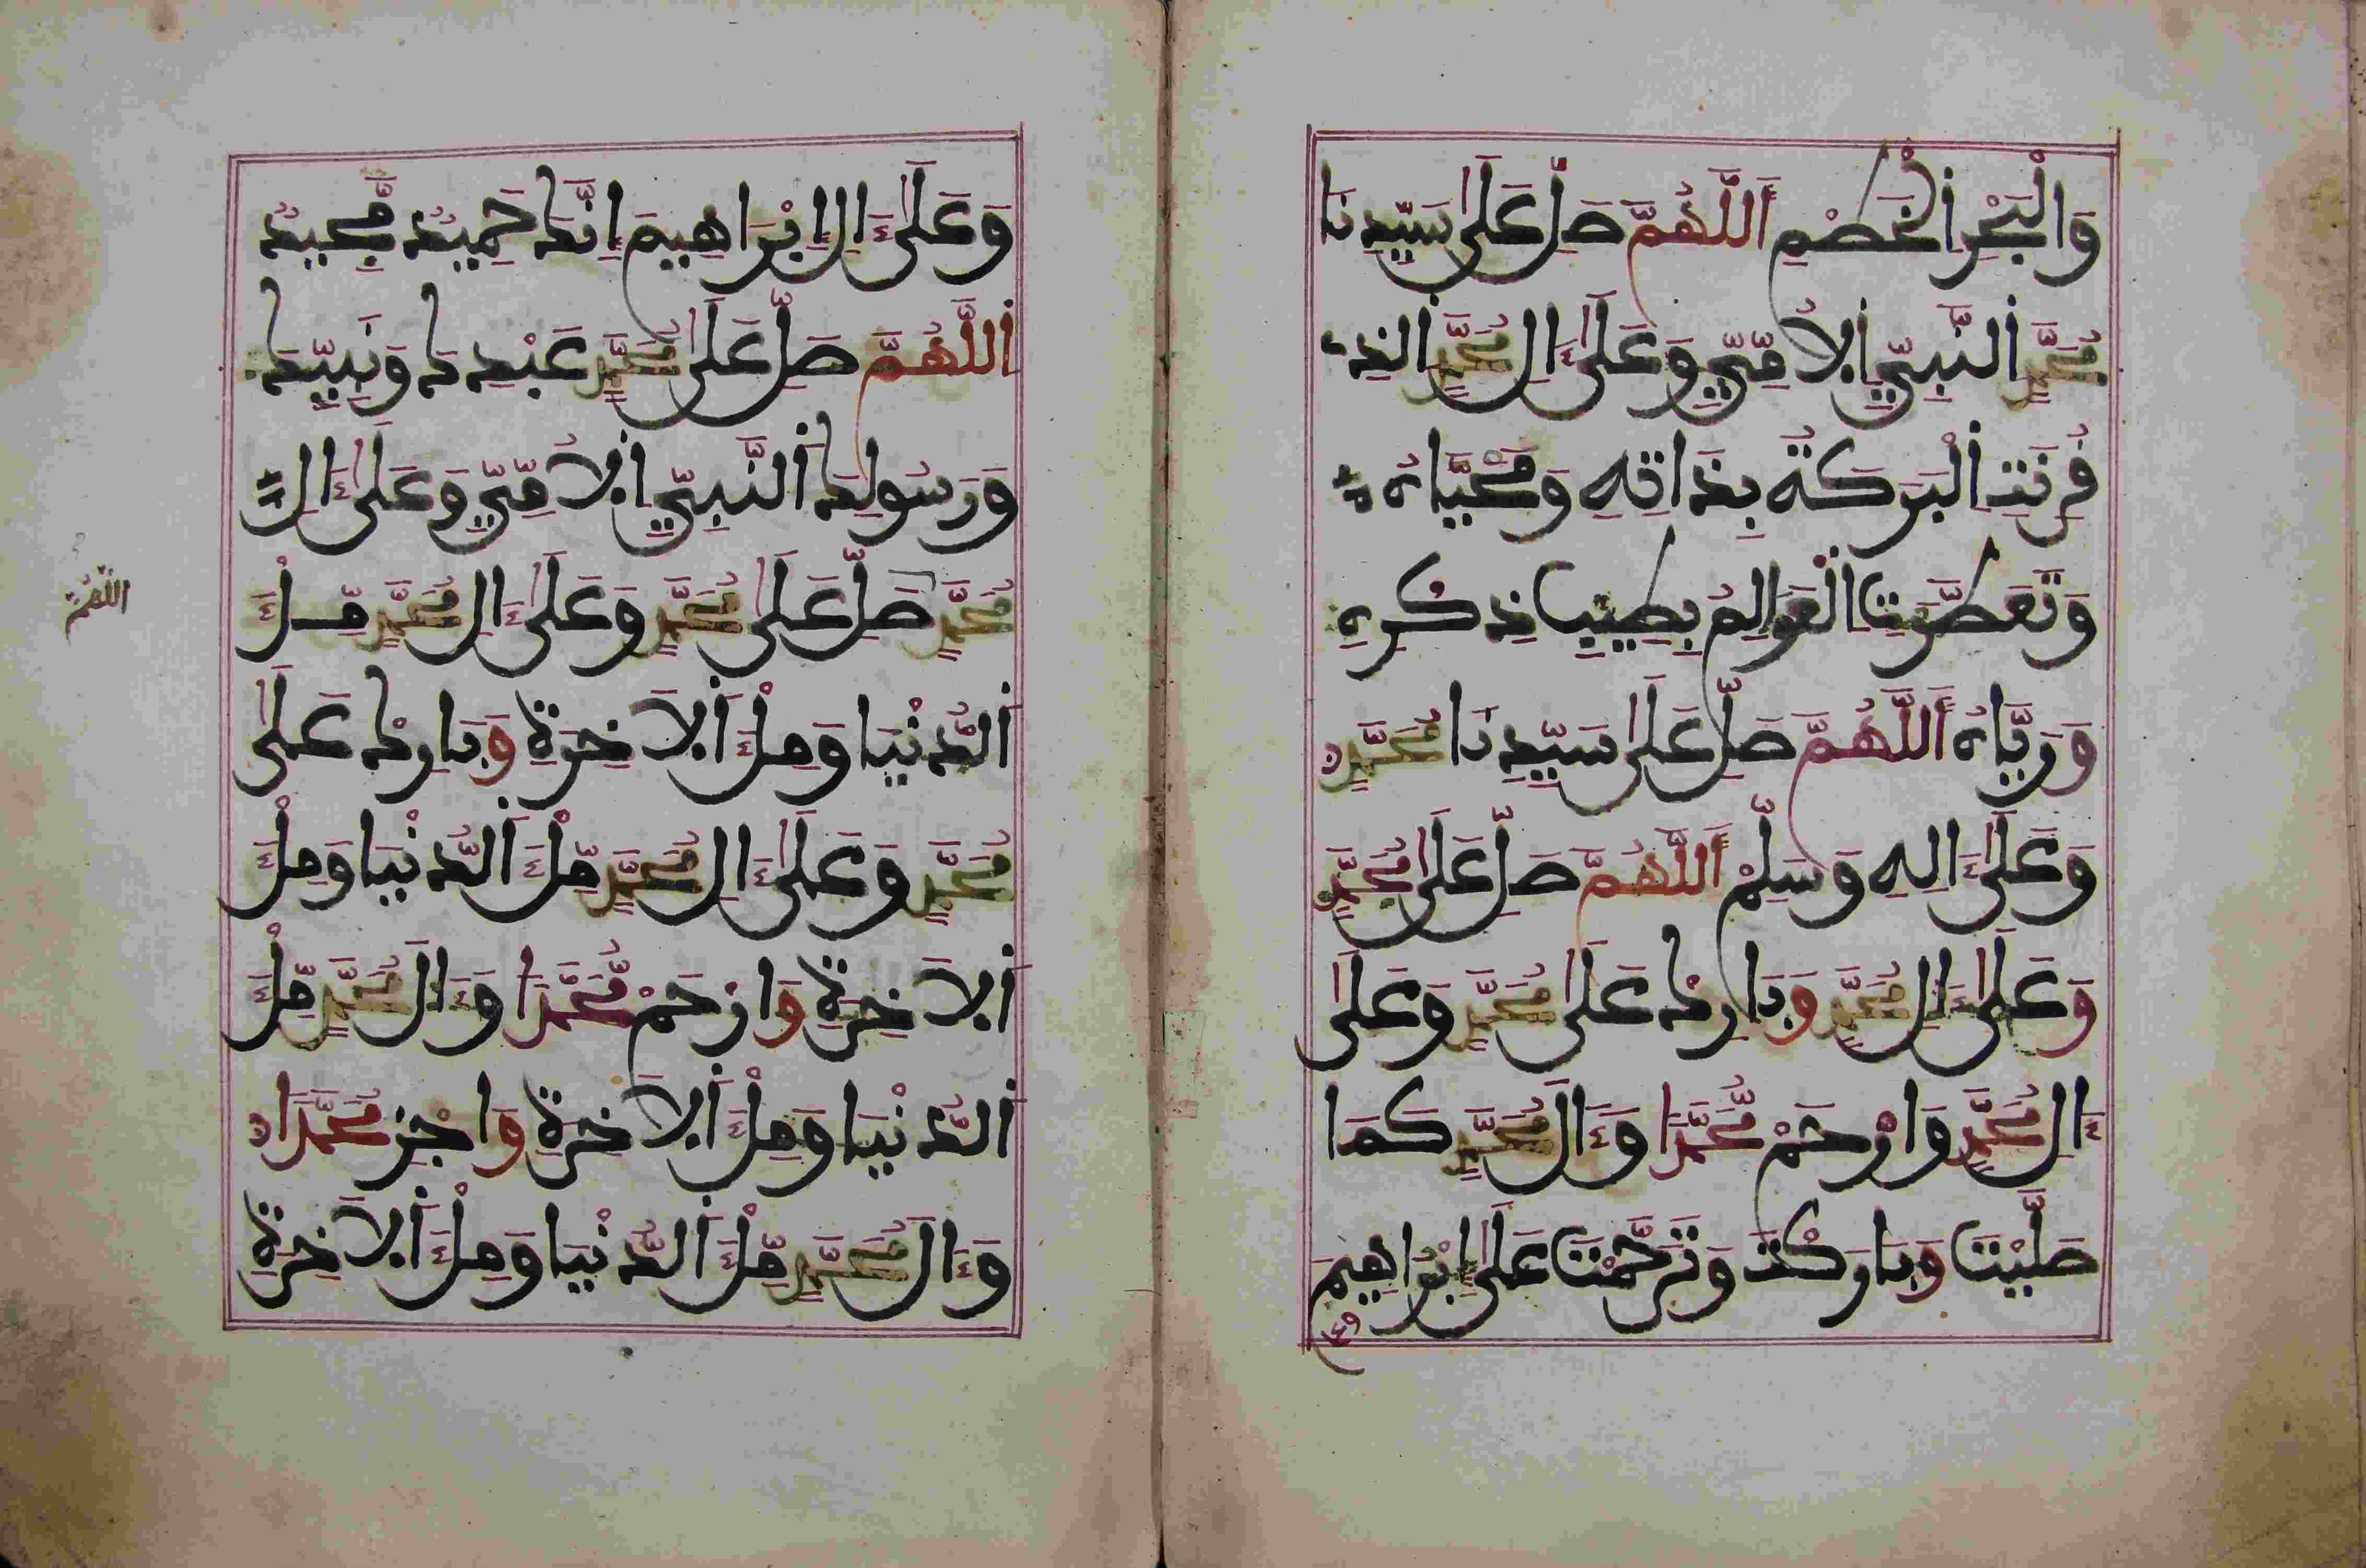 وَالْبَحْرِ الْخِضَمِّ اَللَّهُمَّ صَلِّ عَلَى سَيِّدِنَا
مُحَمَّدٍ النَّبِيِّ الْأُمِّيِّ وَعَلَى ءَالِ مُحَمَّدٍ الذِي
قُرِنَتِ الْبَرَكَةُ بِذَاتِهِ وَمُحَيَّاهُ
وَتَعَطَّرَتِ الْعَوَالِمُ بِطِيبِ ذِكْرِهِ
وَرَيَّاهُ اَللَّهُمَّ صَلِّ عَلَى سَيِّدِنَا مُحَمَّدٍ
وَعَلَى ءَالِهِ وَسَلِّمْ اَللَّهُمَّ صَلِّ عَلَى مُحَمَّدٍ
وَعَلَى ءَالِ مُحَمَّدٍ وَبَارِكْ عَلَى مُحَمَّدٍ وَعَلَى
ءَالِ مُحَمَّدٍ وَارْحَمْ مُحَمَّدًا وَءَالَ مُحَمَّدٍ كَمَا
صَلَّيْتَ وَبَارَكْتَ وَتَرَحَّمْتَ عَلَى إِبْرَاهِيمَ
وَعَلَى ءَالِ إِبْرَاهِيمَ إِنَّكَ حَمِيدٌ مَّجِيدٌ
اَللَّهُمَّ صَلِّ عَلَى مُحَمَّدٍ عَبْدِكَ وَنَبِيِّكَ
وَرَسُولِكَ النَّبِيِّ الْأُمِّيِّ وَعَلَى ءَالِ
مُحَمَّدٍ صَلِّ عَلَى مُحَمَّدٍ وَعَلَى ءَالِ مُحَمَّدٍ مِّلْءَ
اللهم
الدُّنْيَا وَمِلْءَ الْآخِرَةِ وَبَارِكْ عَلَى
مُحَمَّدٍ وَعَلَى ءَالِ مُحَمَّدٍ مِّلْءَ الدُّنْيَا وَمِلْءَ
الْآخِرَةِ وَارْحَمْ مُّحَمَّدًا وَءَالَ مُحَمَّدٍ مِّلْءَ
الدُّنْيَا وَمِلْءَ الْآخِرَةِ وَاجْزِ مُحَمَّدًا
وَءَالَ مُحَمَّدٍ مِّلْءَ الدُّنْيَا وَمِلْءَ الْآخِرَةِ